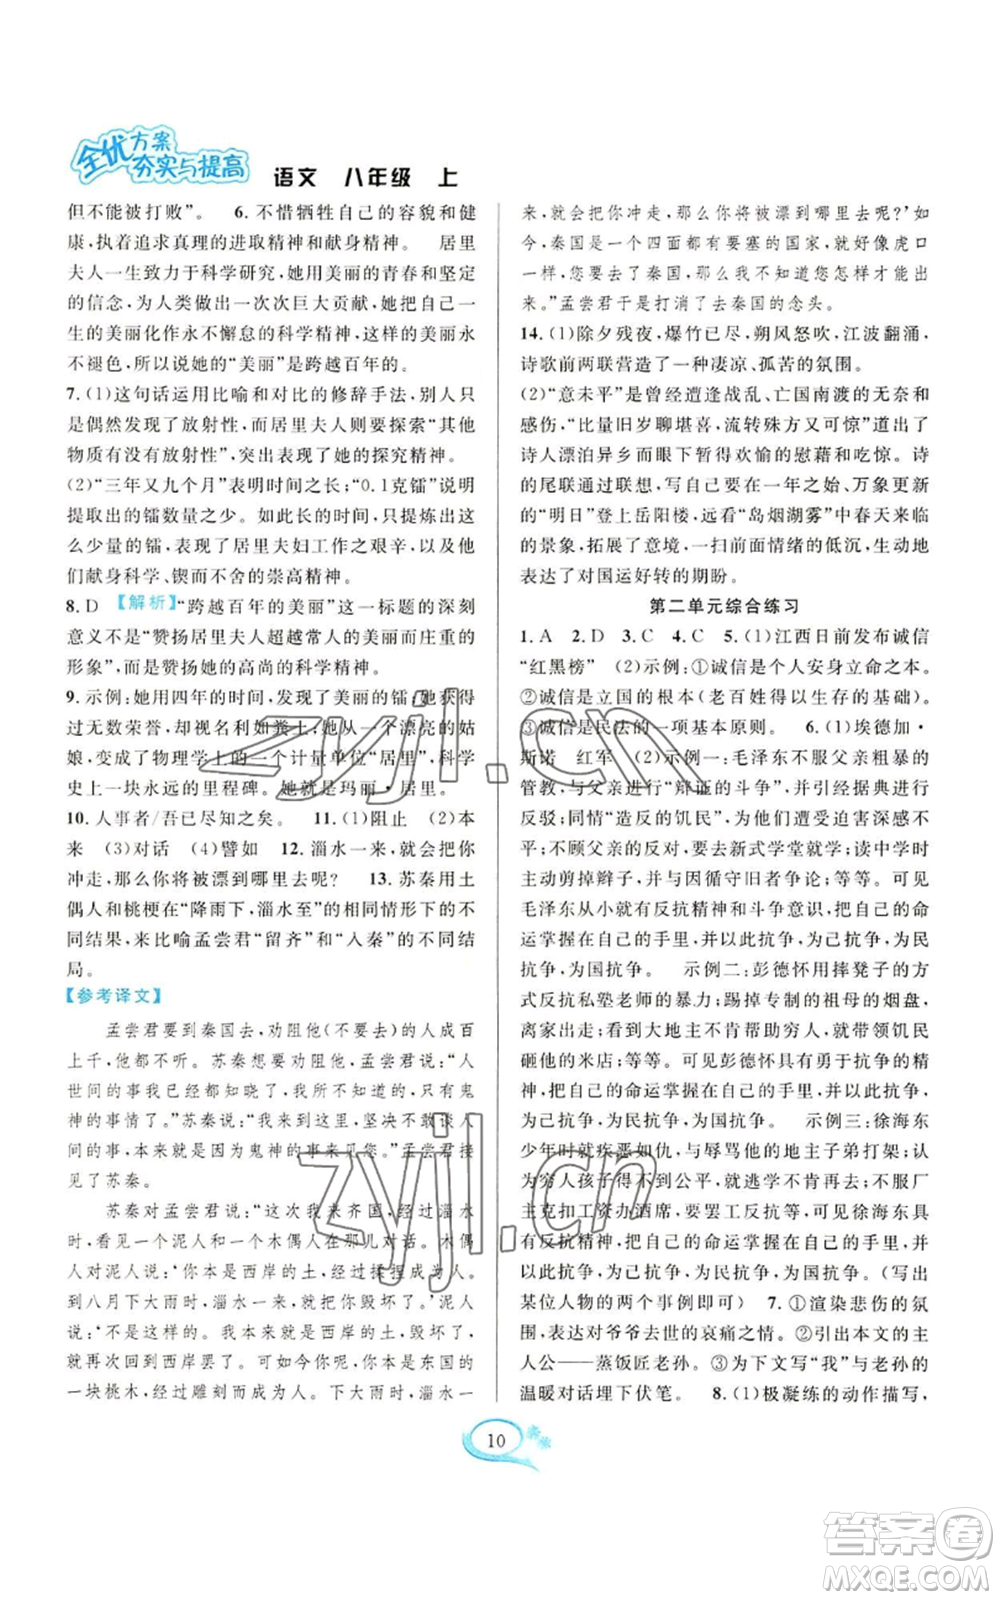 全优方案
夯实与提高
语文 八年级 上
但不能被打败”。 6. 不惜牺牲自己的容貌和健
康,执着追求真理的进取精神和献身精神。 居里
夫人一生致力于科学研究,她用美丽的青春和坚定
的信念,为人类做出一次次巨大贡献,她把自己一
生的美丽化作永不懈怠的科学精神,这样的美丽永
不褪色,所以说她的“美丽”是跨越百年的。
7. (1)这句话运用比喻和对比的修辞手法,别人只是
偶然发现了放射性,而居里夫人则要探索“其他
物质有没有放射性”,突出了她的探究精神。
(2)“三年又九个月”表明时间之长;“0.1克镭”说明
提取出的镭数量之少。如此长的时间,只提炼出这
么少量的镭,表现了居里夫妇工作之艰辛,以及他
们献身科学、锲而不舍的崇高精神。
8. D 【解析】“跨越百年的美丽”这一标题的深刻
意义不是“赞扬居里夫人超越常人的美丽而庄重的
形象”,而是赞扬她的高尚的科学精神。
9. 示例:她用四年的时间,发现了美丽的镭,她获得
过无数荣誉,却视名利如粪土;她从一个漂亮的姑
娘,变成了物理学上的一个计量单位“居里”、科学
史上一块永远的里程碑。她就是玛丽·居里。
10. 人事者/吾已尽知之矣。 11. (1)阻止 (2)本
来 (3)对话 (4)譬如 12. 淄水一来,就会把你
冲走,那么你将被漂到哪里去呢? 13. 苏秦用土
偶人和桃梗在“降雨下,淄水至”的相同情形下的不
同结果,来比喻孟尝君“留齐”和“入秦”的不同结
局。
【参考译文】
孟尝君要到秦国去,劝阻他(不要去)的人成百
上千,他都不听。苏秦想要劝阻他,孟尝君说:“人
世间的事我已经都知晓了;我所不知道的,只有鬼
神的事情了。”苏秦说:“我来到这里,坚决不敢谈人
间的事,本来就是因为鬼神的事来见您。”孟尝君接
见了苏秦。
苏秦对孟尝君说:“这次我来齐国,经过淄水
时,看见一个泥人和一个木偶人在那儿对话。木偶
人对泥人说:‘你本是西岸的土,经过揉捏成为人。
到八月下大雨时,淄水一来,就把你毁坏了。’泥人
说:‘不是这样的。我本来就是西岸的土,毁坏了,
就再次回到西岸罢了。但你本来是东国的
一块桃木,经过雕刻而成为人。下大雨时,淄水一
来,就会把你冲走,那么你将被漂到哪里去呢?’如
今,秦国是一个四面都有要塞的国家,就好像虎口
一样,您要去了秦国,我不知道您怎样才能够出
来。”孟尝君于是打消了去秦国的念头。
14. (1)除夕残夜,爆竹已尽,朔风怒吹,江波翻涌,
诗歌前两联营造了一种凄凉、孤苦的氛围。
(2)“意未平”是曾经遭逢战乱、亡国南渡的无奈和
感伤,“比量旧岁聊堪喜,流转殊方又可惊”道出了
诗人漂泊异乡而暂听欢愉的慰藉和吃惊之感。诗
的尾联通过联想,把目光投向在一年之始、万象更新
的“明日”登上岳阳楼,远看“岛烟湖雾”中春天来临
的景象,拓展了意境,一扫前面情绪的低沉,生动地
表达了对国运好转的期盼。
第二单元综合练习
1. A 2. D 3. C 4. C 5. (1)江西日前发布诚信
“红黑榜” (2)示例:①诚信是个人安身立命之本。
②诚信是立国的根本(老百姓得以生存的基础)。
③诚信是民法的一项基本原则。 6. (1)埃德加·
斯诺 红军 (2)示例一:毛泽东不服父亲粗暴的
管教,与父亲进行“辩证的斗争”,并引经据典进行
反驳;同情“造反的饥民”,对他们的遭遇深感不
平;不顾父亲的反对,要去新式学堂就学;读中学时
力主剪掉辫子,与因循守旧者争论;等等。可见
毛泽东从小就有反抗精神和斗争意识,把自己的命
运掌握在自己的手里,并以此抗争,为己抗争,为民
抗争,为国抗争。 示例二:彭德怀用摔凳子的方
式反抗私塾老师的暴力;踢掉专制的祖母的烟盘,
离家出走;看到大地主不肯帮助穷人,就带领饥民
砸他的米店;等等。可见彭德怀具有勇于抗争的精
神,把自己的命运掌握在自己的手里,并以此抗争,
为己抗争、为民抗争、为国抗争。 示例三:徐海东
少年时就疾恶如仇,与辱骂他的地主子弟打架;认
为穷人孩子得不到公平,毅然辍学;不服厂
主克扣工资办酒席,要罢工反抗等等,可见徐海东具有
反抗精神,把自己的命运掌握在自己的手里,并以
此抗争,为己抗争、为民抗争、为国抗争。(写出
某位人物的两个事例即可) 7. ①渲染悲伤的氛
围,表达对爷爷去世的哀痛之情。②引出本文的主
人公——蒸饭匠老孙。③为下文写“我”与老孙的
温暖对话埋下伏笔。 8. (1)极凝练的动作描写,
10
zyjl.cn
zyjl.cn
答案圈
MXQE.COM